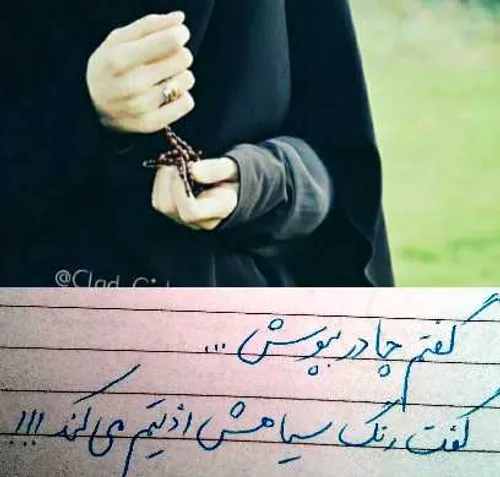 @Clad_Girl
گفتم چادر بپوش ...
گفت رنگ سیاهش اذیتم می کند !!!